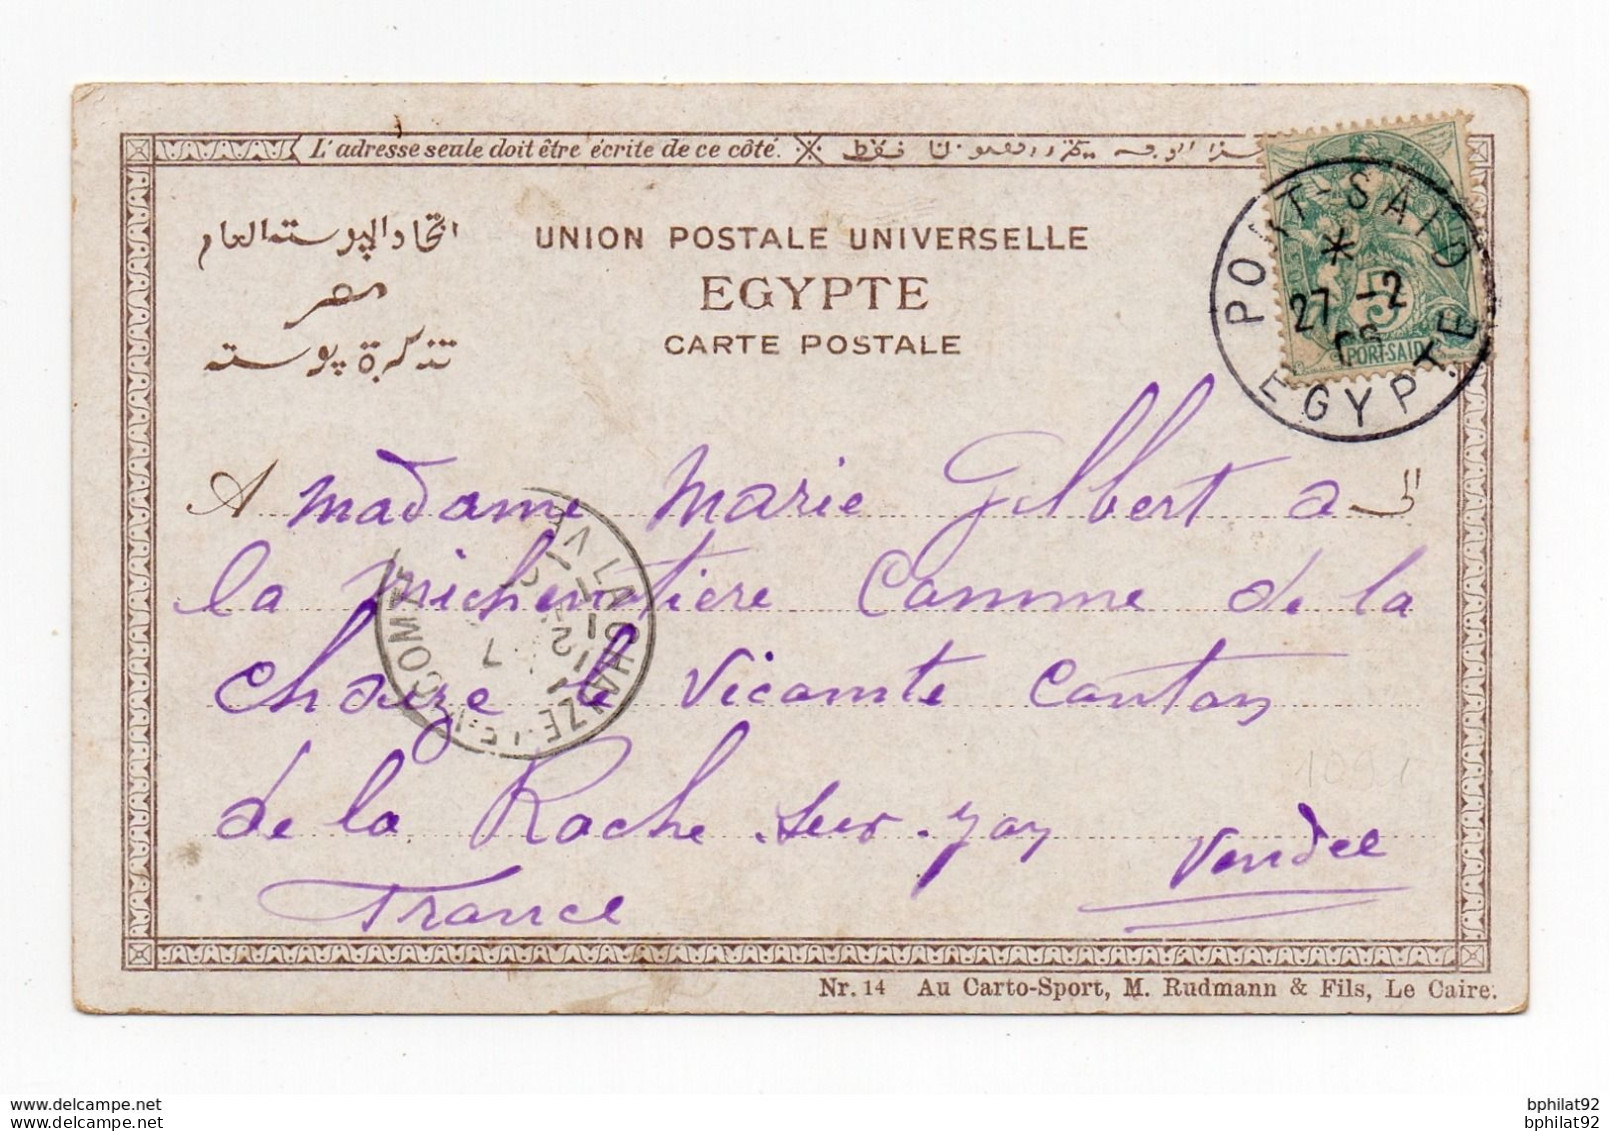 L'adresse seule doit être écrite de ce côté.
اتحاد البوسته العام
مصر
تذكرة بوسته
UNION POSTALE UNIVERSELLE
EGYPTE
CARTE POSTALE
PORT-SAID
27 -2
EGYPTE
5
PORT-SAID
A madame Marie Gilbert a
la michenotiere Comme de la
Chaize le Vicomte Canton
de la Roche sur yon
Vendee
France
LA CHAIZE-LE-VICOMTE
Nr. 14 Au Carto-Sport, M. Rudmann & Fils, Le Caire.
www.delcampe.net
www.delcampe.net
bphilat92
bphilat92